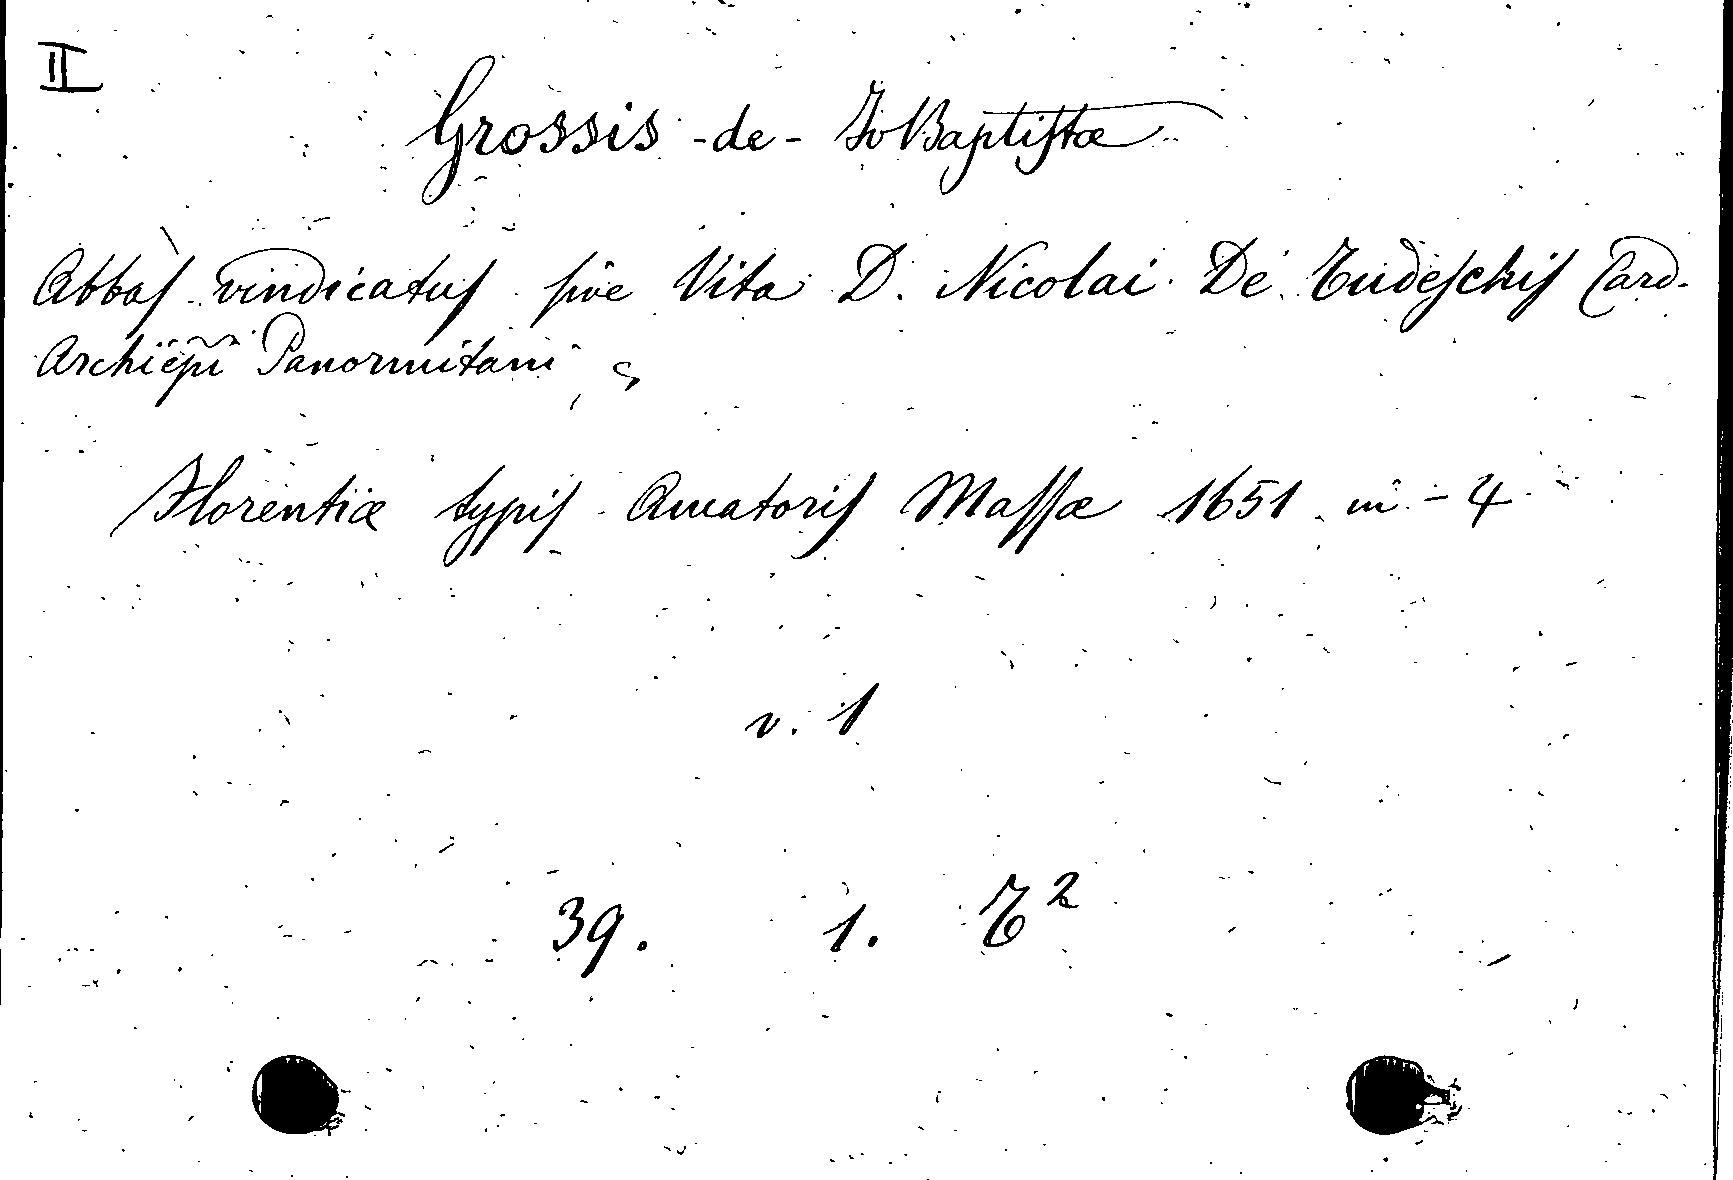 II
Grossis - de - Jo Baptistæ
Abbas vindicatus sive Vita D. Nicolai De Tudeschis Card.
Archiepi Panormitani
Florentiæ typis Amatoris Massæ 1651 in - 4
v. 1
39. 1. E²